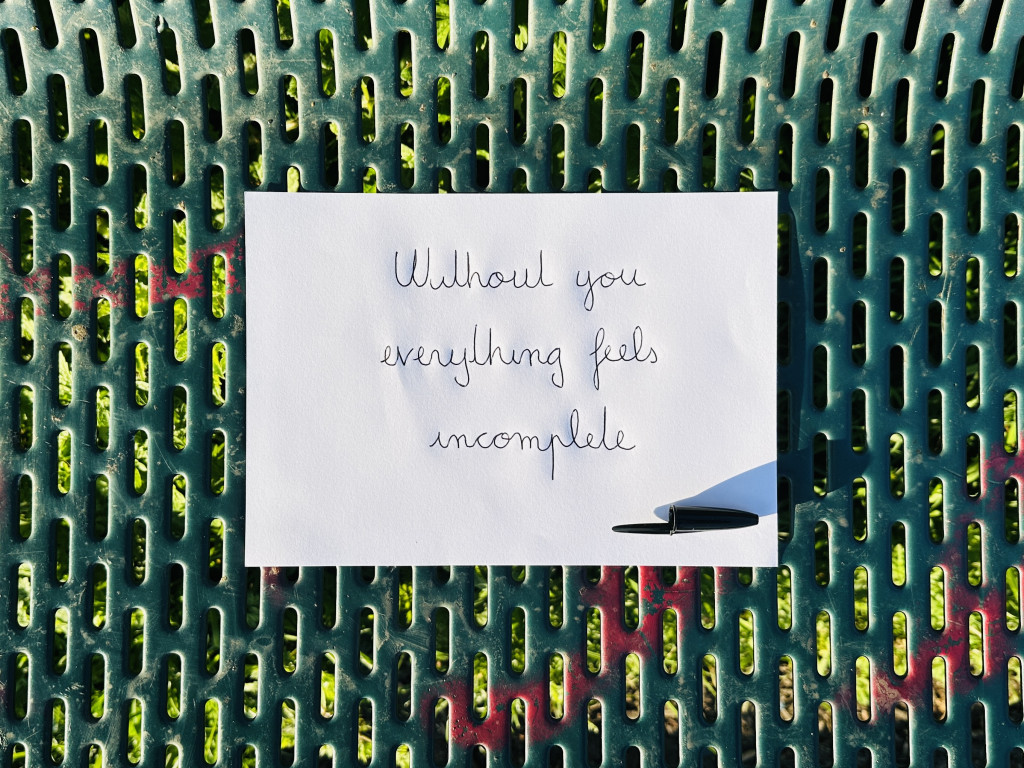 Without you
everything feels
incomplete